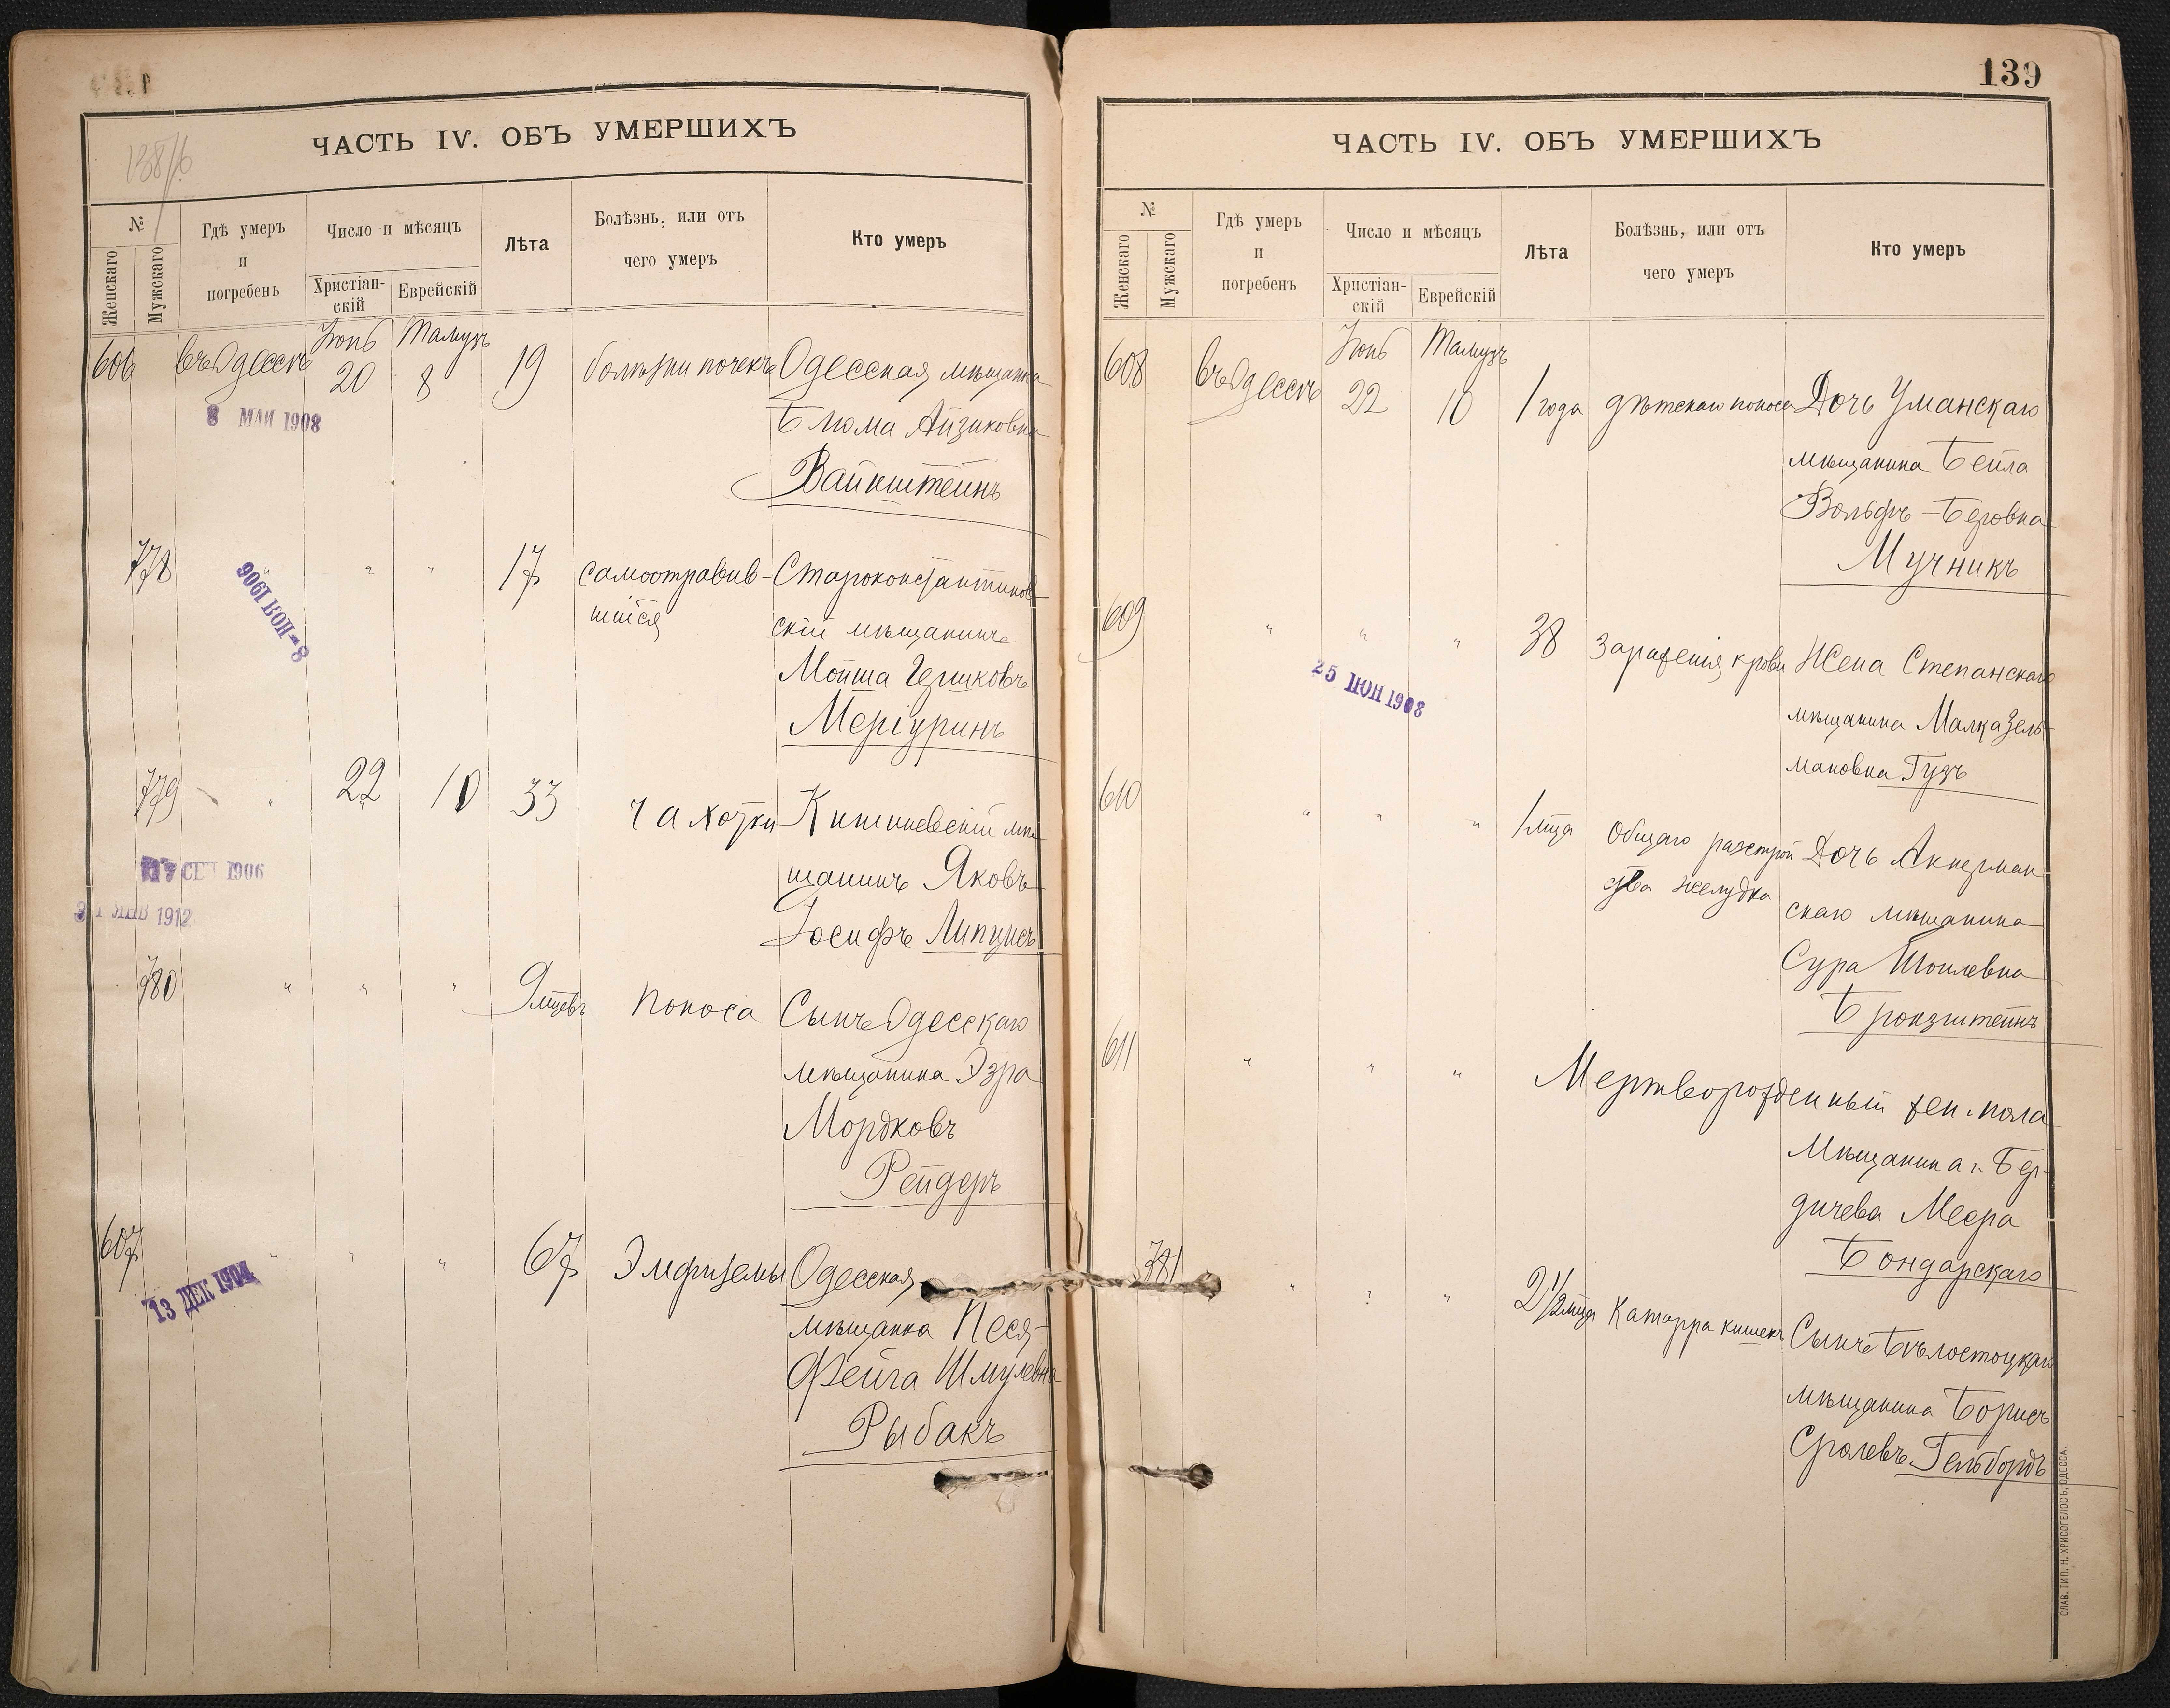 138/б
ЧАСТЬ IV. ОБЪ УМЕРШИХЪ
№
Женскаго
Мужскаго
Гдѣ умеръ
и
погребенъ
Число и мѣсяцъ
Христіан-
скій
Еврейскій
Лѣта
Болѣзнь, или отъ
чего умеръ
Кто умеръ
606 въ Одессѣ Іюнь 20 Тамузъ 8 19 болѣзни почекъ Одесская мѣщанка
Блюма Айзиковна
Вайнштейнъ
8 МАЙ 1908
778 " " " 17 самоотравив- Староконстантинов
шійся скій мѣщанинъ
Мойша Гершковъ
8 - НОЯ 1906
779 " 22 10 33 чахотки Кишиневскій мѣ
щанинъ Яковъ
Іосифъ Липцисъ
СЕН 1906
ЯНВ 1912
780 " " " 9 мцевъ поноса Сынъ Одесскаго
мѣщанина Эзра
Мордковъ
Рейдеръ
607 " " " 67 Эмфиземы Одесская
мѣщанка Песя-
Фейга Шмулевна
Рыбакъ
13 ДЕК 1904
139
ЧАСТЬ IV. ОБЪ УМЕРШИХЪ
№
Женскаго
Мужскаго
Гдѣ умеръ
и
погребенъ
Число и мѣсяцъ
Христіан-
скій
Еврейскій
Лѣта
Болѣзнь, или отъ
чего умеръ
Кто умеръ
608 въ Одессѣ Іюнь 22 Тамузъ 10 1 года дѣтскаго поноса Дочь Уманскаго
мѣщанина Бейла
Вольфъ-Беровна
Мучникъ
609 " " " 38 Зараженія крови Жена Степанскаго
мѣщанина Малка Зель-
мановна Гузъ
25 ІЮН 1908
610 " " " 1 мца Общаго разстрой Дочь Аккерман
ства желудка скаго мѣщанина
Сура Шоилевна
Бронзштейнъ
611 " " " Мертворожденный жен. пола
Мѣщанина г. Бер-
дичева Меера
Бондарскаго
781 " " " 2 1/2 мца Катарра кишекъ Сынъ Бѣлостоцкаго
мѣщанина Борисъ
Сролевъ Гельбордъ
СЛАВ. ТИП. Н. ХРИСОГЕЛОСЪ, ОДЕССА.